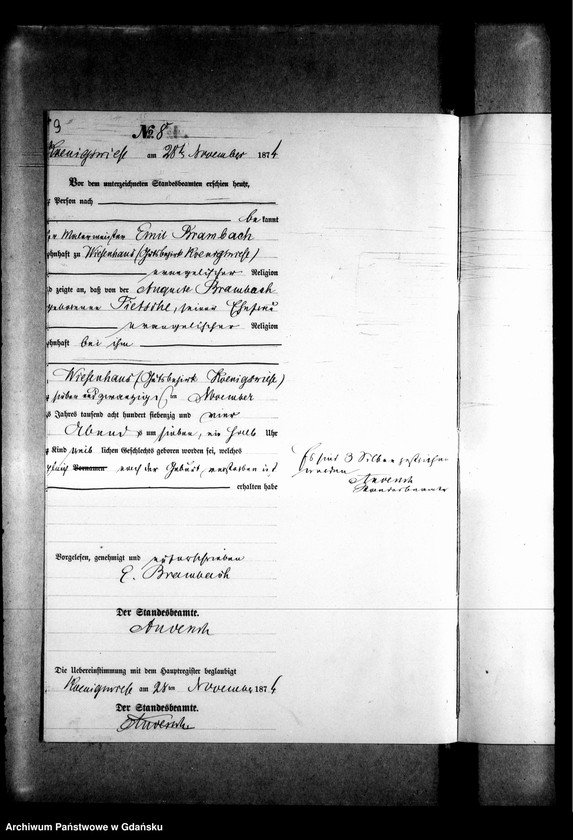 9
No. 8
Koenigswiese am 28ten November 1874
Vor dem unterzeichneten Standesbeamten erschien heute,
Person nach
bekannt
Malermeister Emil Brambach
ohnhaft zu Wiesenhaus (Gutsbezirk Koenigswiese)
evangelischer Religion
zeigte an, daß von der Auguste Brambach
geborenen, seiner Ehefrau
evangelischer Religion
ohnhaft bei ihm
Wiesenhaus (Gutsbezirk Koenigswiese)
sieben und zwanzigsten November
s Jahres tausend acht hundert siebenzig und vier
Abends um sieben, ein halb Uhr
Kind weiblichen Geschlechts geboren worden sei, welches
Vornamen nach der Geburt verstorben ist
erhalten habe
Es sind 3 Silben gestrichen
worden
Standesbeamter
Vorgelesen, genehmigt und unterschrieben
E. Brambach
Der Standesbeamte.
Die Uebereinstimmung mit dem Hauptregister beglaubigt
Koenigswiese am 28ten November 1874
Der Standesbeamte.
Archiwum Państwowe w Gdańsku